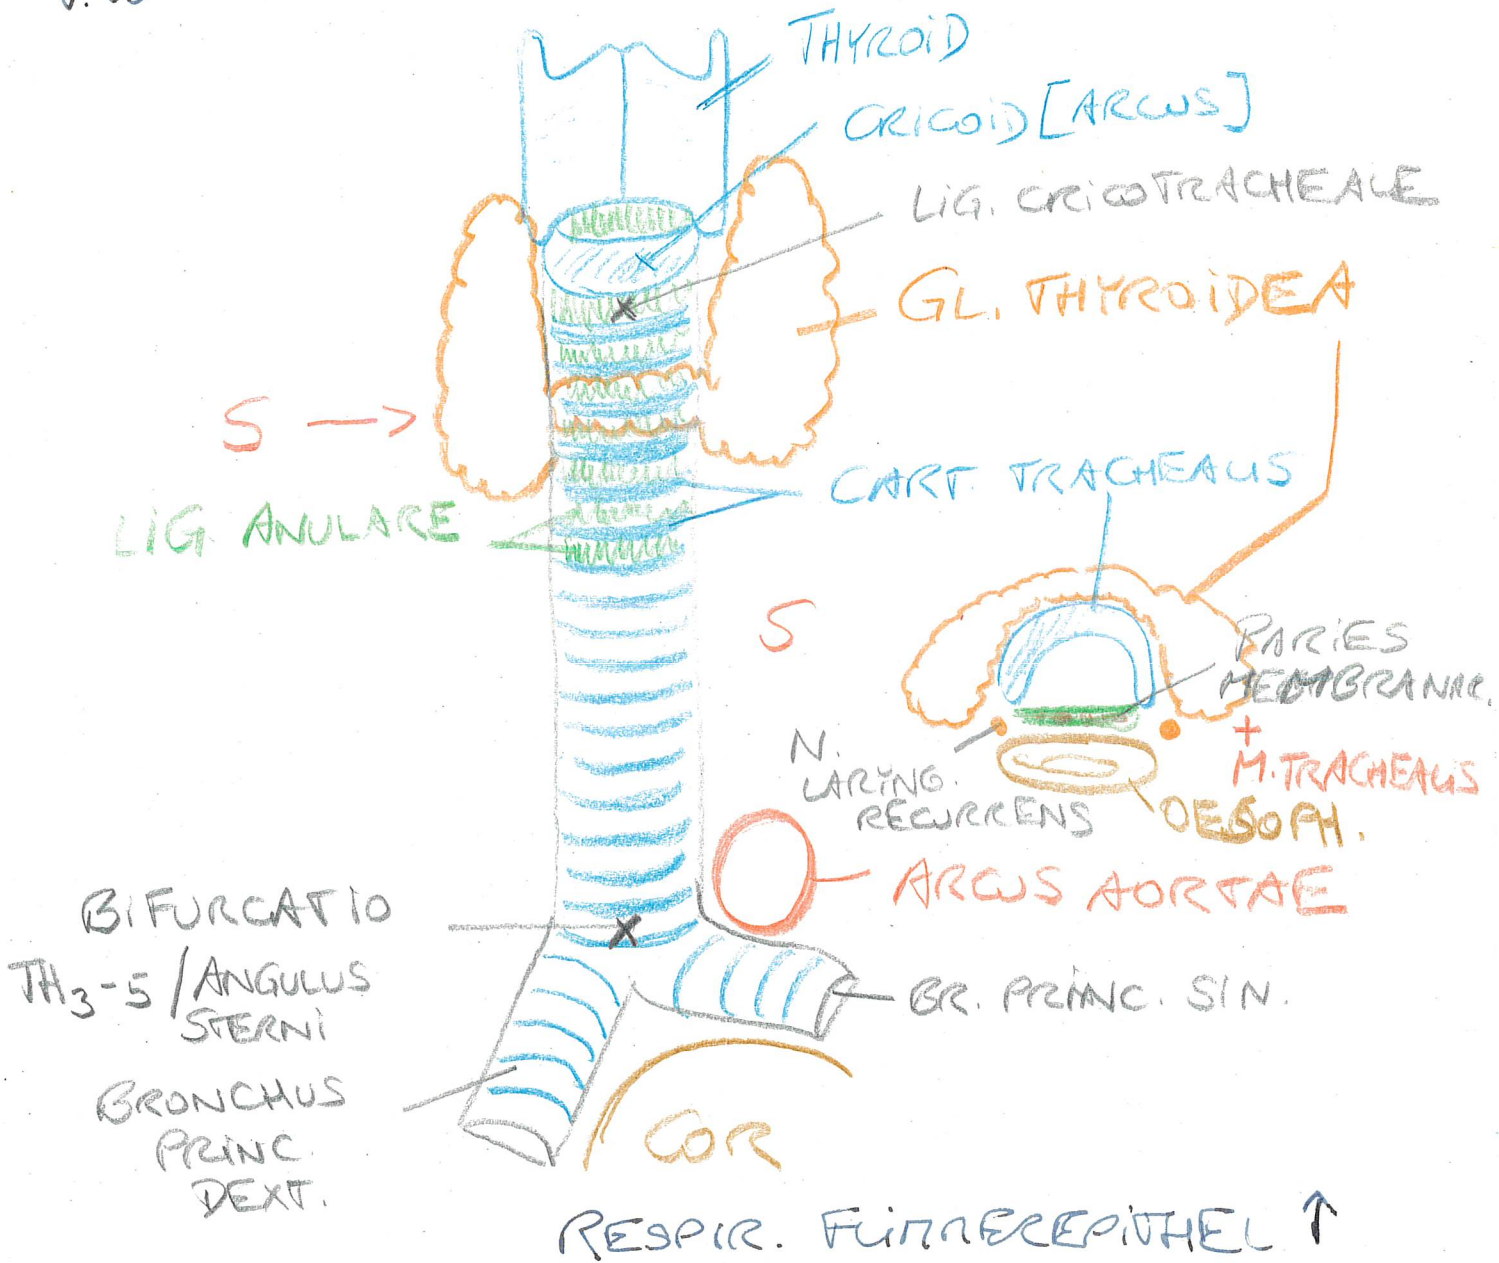 THYROID
CRICOID [ARCUS]
LIG. CRICOTRACHEALE
GL. THYROIDEA
S →
CART. TRACHEALIS
LIG. ANULARE
S
PARIES
MEMBRANAC.
+
M. TRACHEALIS
N.
LARYNG.
RECURRENS
OESOPH.
ARCUS AORTAE
BIFURCATIO
TH3-5 / ANGULUS
STERNI
BR. PRINC. SIN.
BRONCHUS
PRINC.
DEXT.
COR
RESPIR. FLIMMEREPITHEL ↑